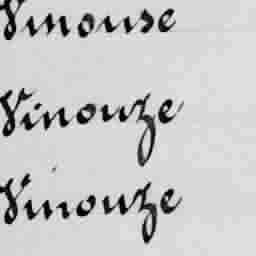 Vinouse
Vinouze
Vinouze